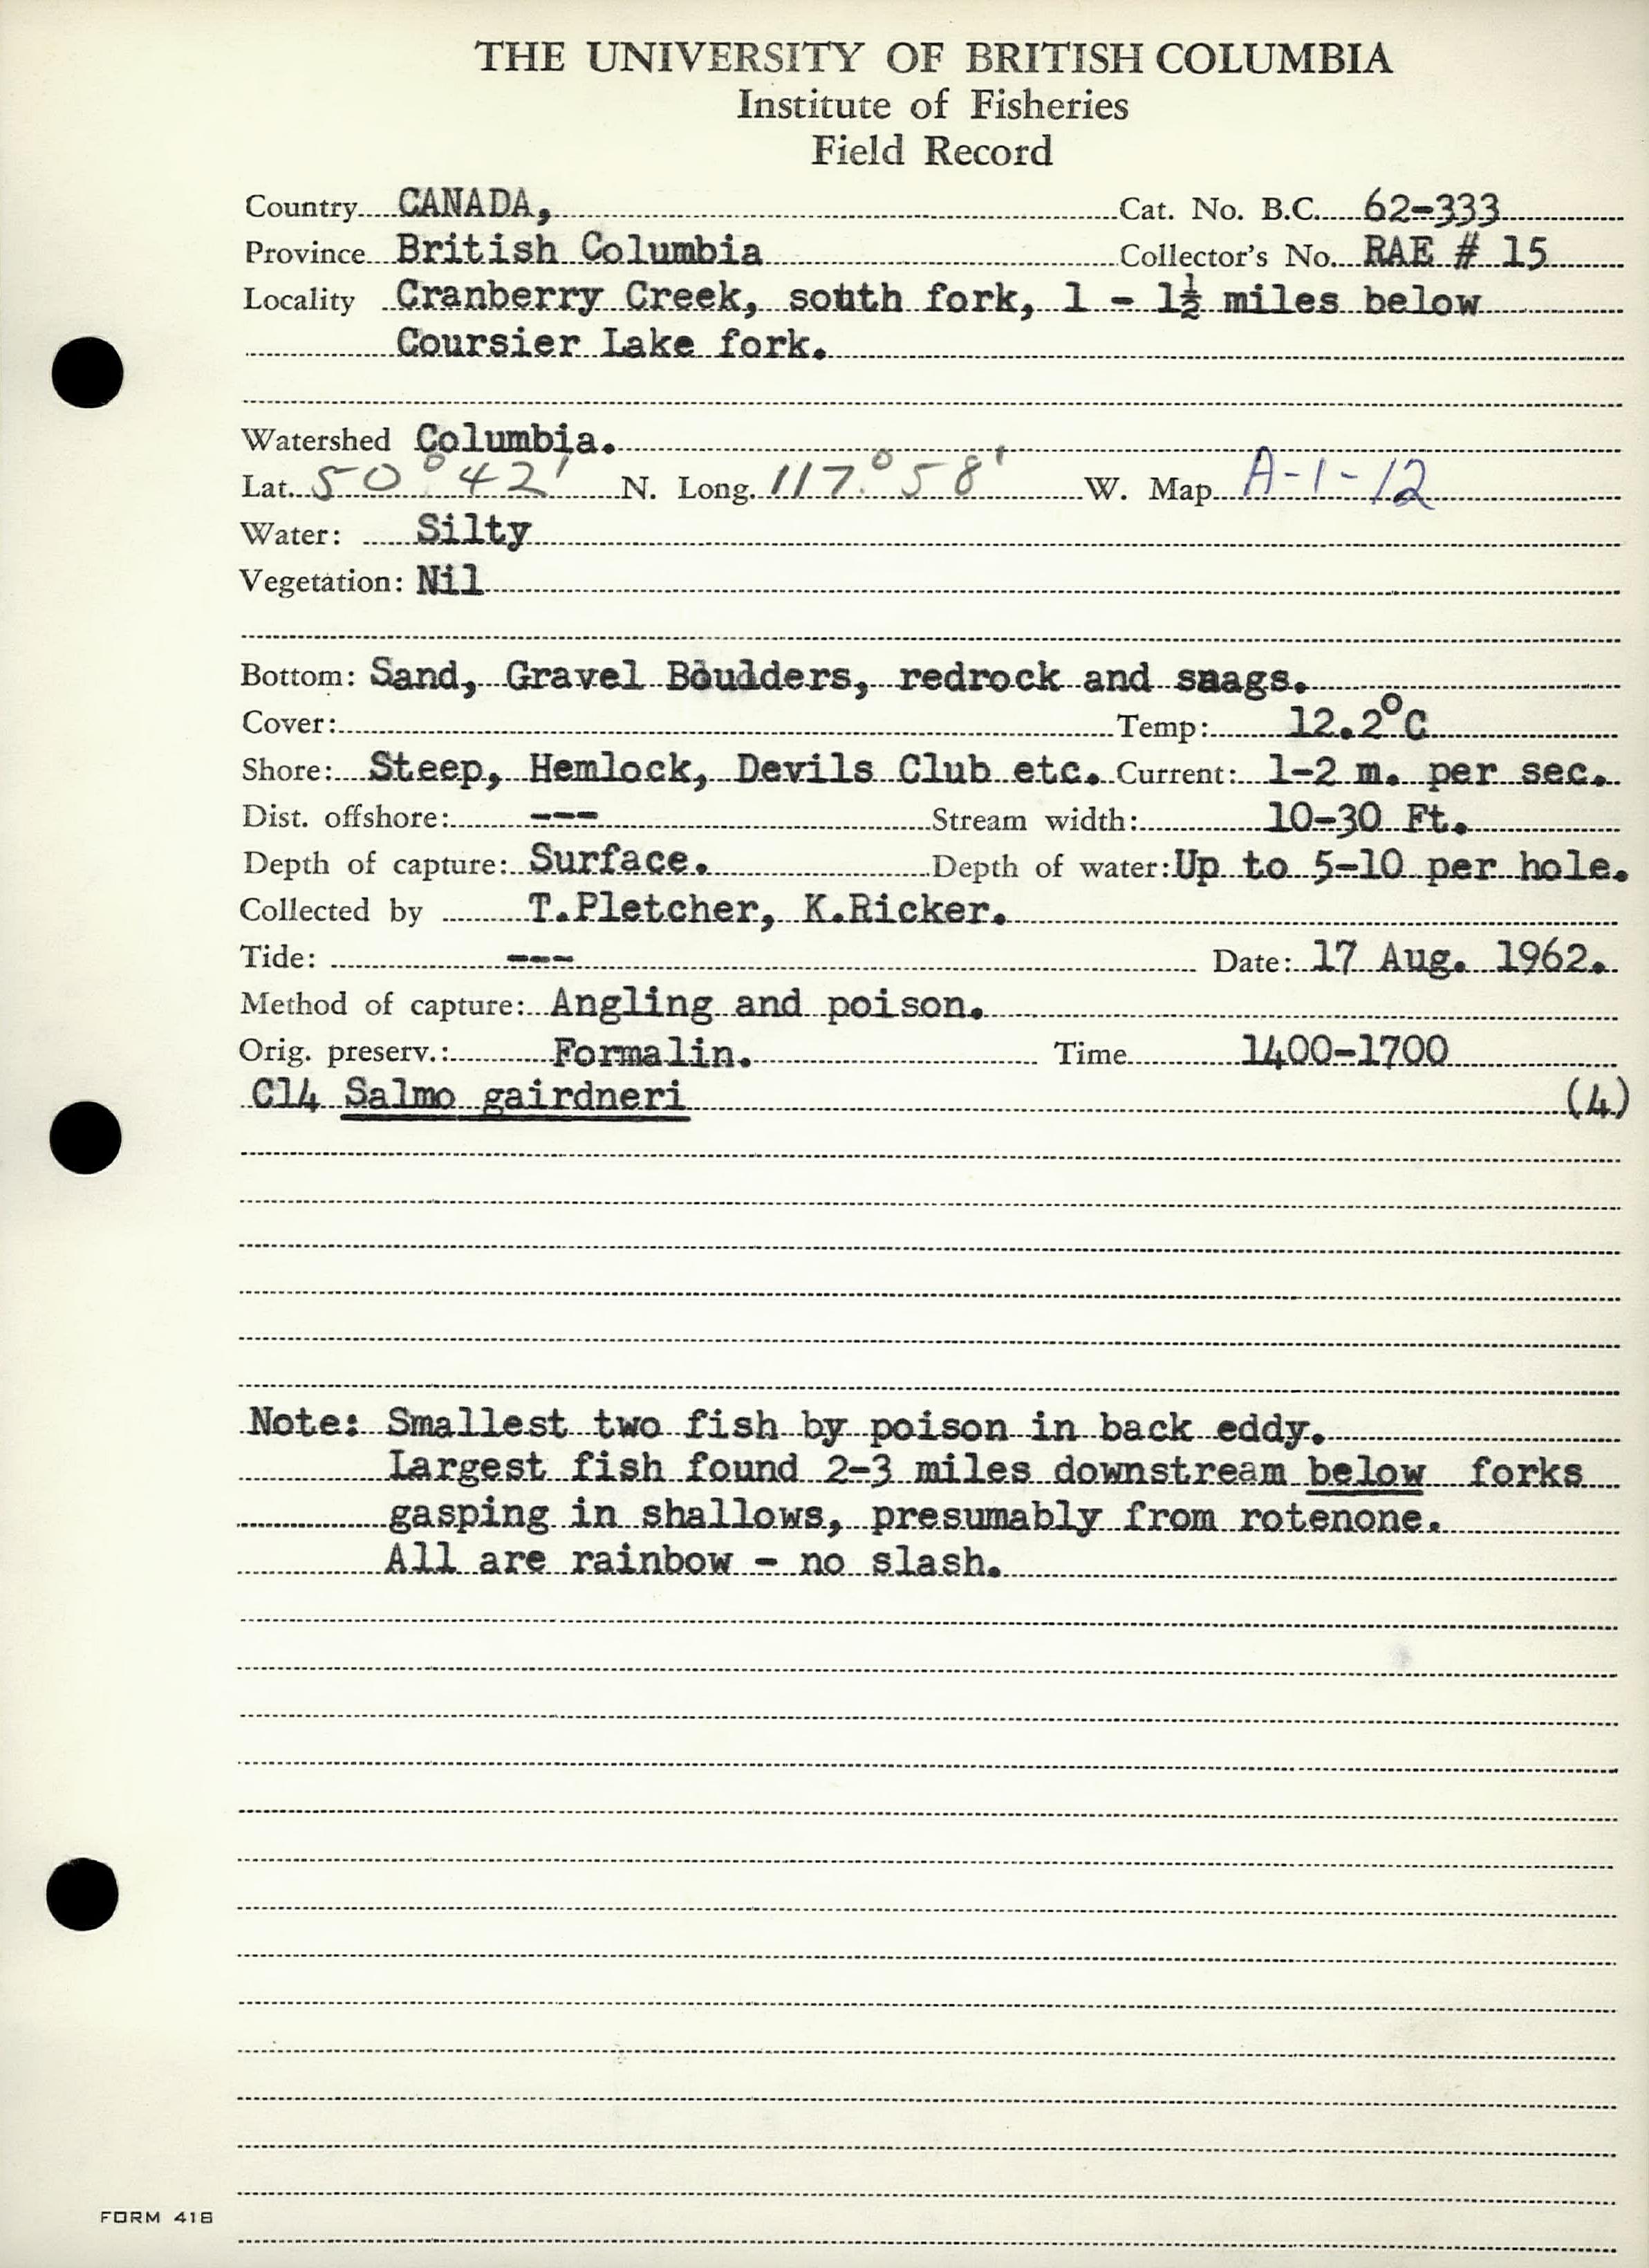 THE UNIVERSITY OF BRITISH COLUMBIA
Institute of Fisheries
Field Record
Country CANADA, Cat. No. B.C. 62-333
Province British Columbia Collector's No. RAE # 15
Locality Cranberry Creek, south fork, 1 - 1½ miles below
Coursier Lake fork.
Watershed Columbia.
Lat. 50°42' N. Long. 117°58' W. Map A-1-12
Water: Silty
Vegetation: Nil
Bottom: Sand, Gravel Boulders, redrock and snags.
Cover: Temp: 12.2°C
Shore: Steep, Hemlock, Devils Club etc. Current: 1-2 m. per sec.
Dist. offshore: --- Stream width: 10-30 Ft.
Depth of capture: Surface. Depth of water: Up to 5-10 per hole.
Collected by T.Pletcher, K.Ricker.
Tide: --- Date: 17 Aug. 1962.
Method of capture: Angling and poison.
Orig. preserv.: Formalin. Time 1400-1700
C14 Salmo gairdneri (4)
Note: Smallest two fish by poison in back eddy.
Largest fish found 2-3 miles downstream below forks
gasping in shallows, presumably from rotenone.
All are rainbow - no slash.
FORM 418